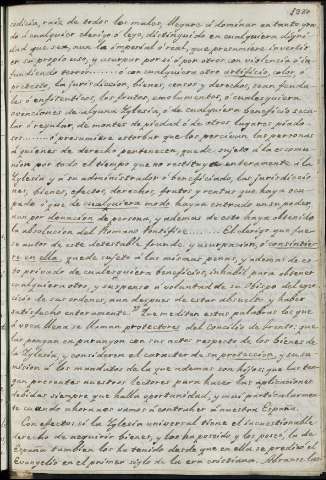 codicia, raiz de todos los males, llegare á dominar en tanto gra-
do á cualquier clerigo ó lego, distinguido en cualquiera digni-
dad que sea, aun la imperial ó real, que presumiere inverter
en su propio uso, y usurpar por sí ó por otros con violencia ó in-
fundiendo terror....... ó con cualquiera otro artificio, color, ó
pretesto, la jurisdiccion, bienes, censos y derechos, sean feuda-
les ó enfiteuticos, los frutos, emolumentos, ó cualesquiera
obvenciones de alguna Iglesia, ó de cualquiera beneficio secu-
lar ó regular, de montes de piedad ó de otros lugares piado-
sos...... ó presumiere estorbar que los perciban las personas
á quienes de derecho pertenecen, quede sujeto á la escomu-
nion por todo el tiempo que no restituya enteramente á la
Iglesia y á su administrador ó beneficiado, las jurisdiccio-
nes, bienes, efectos, derechos, frutos y rentas que haya ocu-
pado ó que de cualquiera modo hayan entrado en su poder,
aun por donacion de persona, y ademas de esto haya obtenido
la absolucion del Romano Pontifice...... El clerigo que fue-
re autor de este detestable fraude y usurpacion, ó consintie-
re en ello, quede sujeto á las mismas penas, y ademas de es-
to privado de cualesquiera beneficios, inhabil para obtener
cualquiera otro, y suspenso á voluntad de su Obispo del ejer-
cicio de sus ordenes, aun despues de estar absuelto y haber
satisfecho enteramente." Que mediten estas palabras los que
á boca llena se llaman protectores del Concilio de Trento; que
las pongan en parangon con sus actos respecto de los bienes de
la Iglesia, y consideren el caracter de su proteccion, y su su-
mision á los mandatos de la que ademas son hijos; que las ten-
gan presentes nuestros lectores para hacer las aplicaciones
debidas siempre que halla oportunidad, y mas particularmen-
te cuando ahora nos vamos á contraher á nuestra España.
Con efecto: si la Iglesia universal tiene el incuestionable
derecho de adquirir bienes, y los ha poseido y los posee, la de
España tambien los ha tenido desde que en ella se predicó el
Evangelio en el primer siglo de la era cristiana.